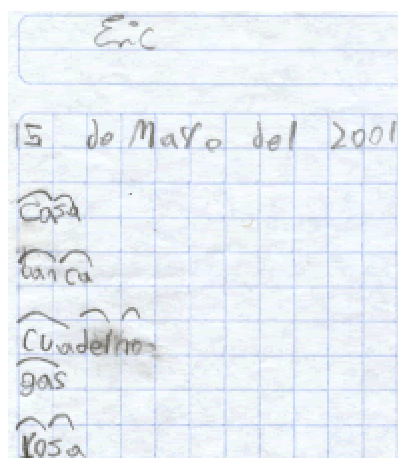 Eric
15 de Mayo del 2001
casa
banca
cuadelno
gas
rosa